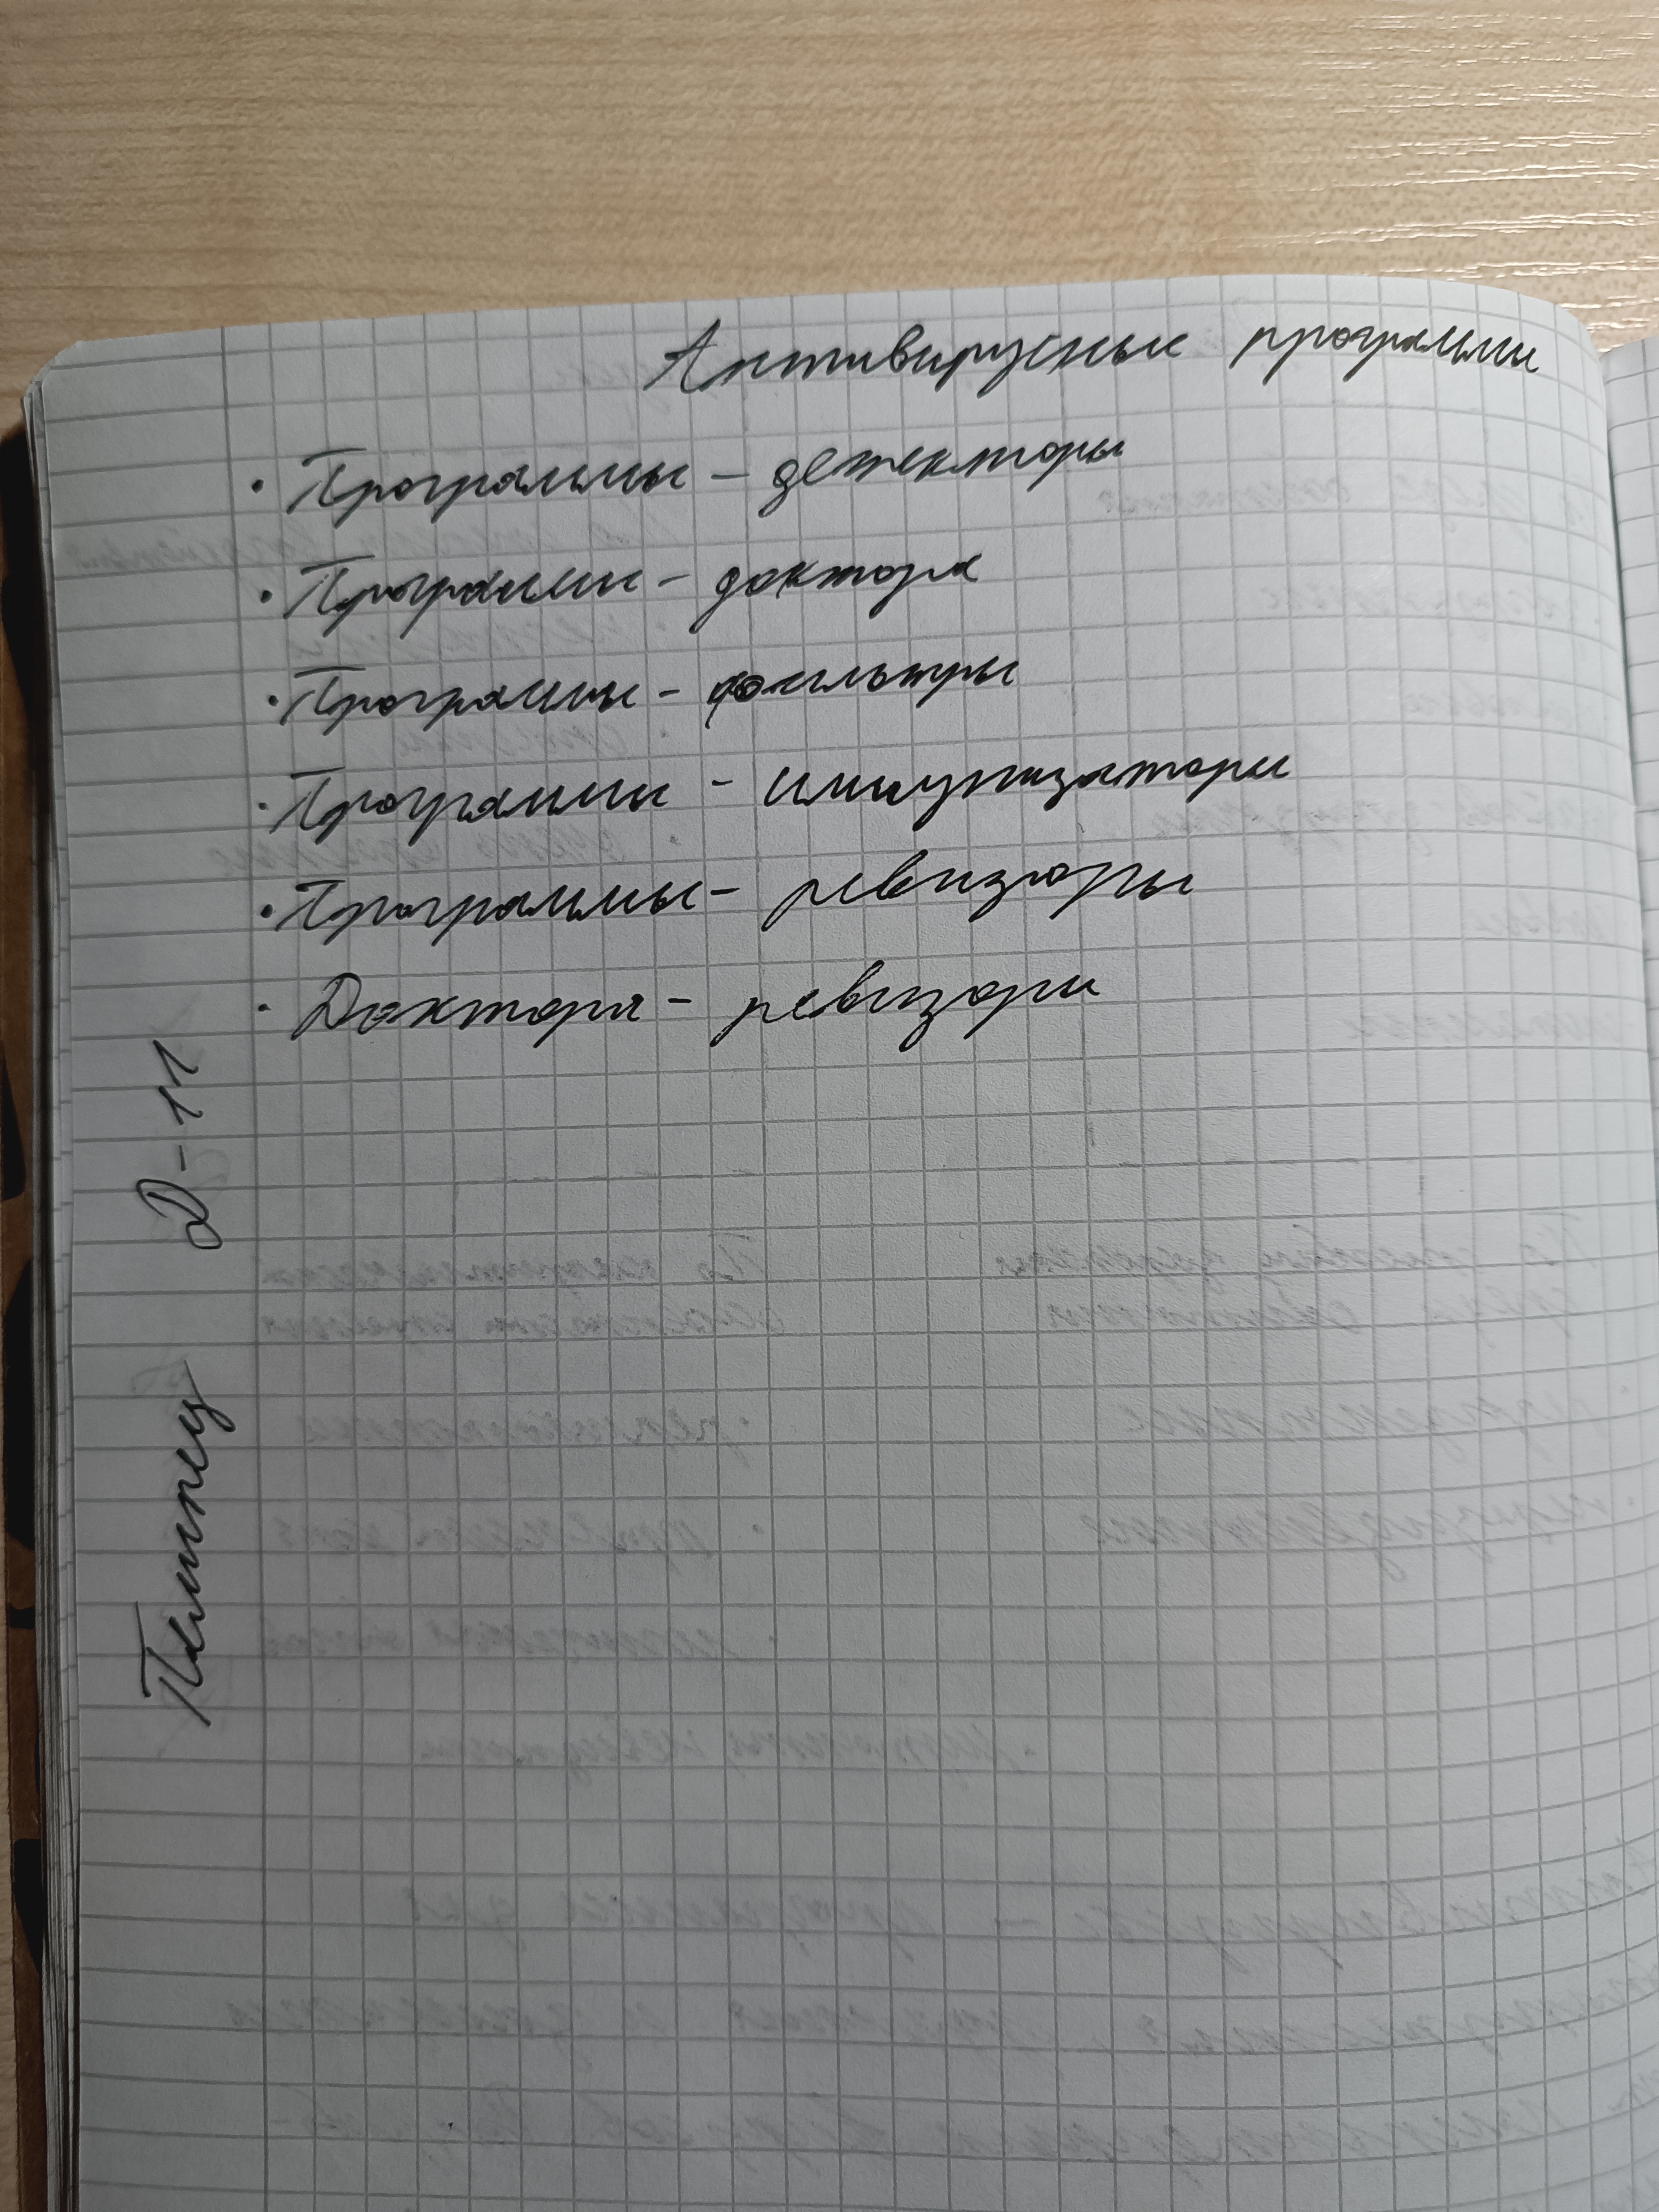 Антивирусные программы
· Программы - детекторы
· Программы - доктора
· Программы - фильтры
· Программы - иммунизаторы
· Программы - ревизоры
· Доктора - ревизоры
Д-11